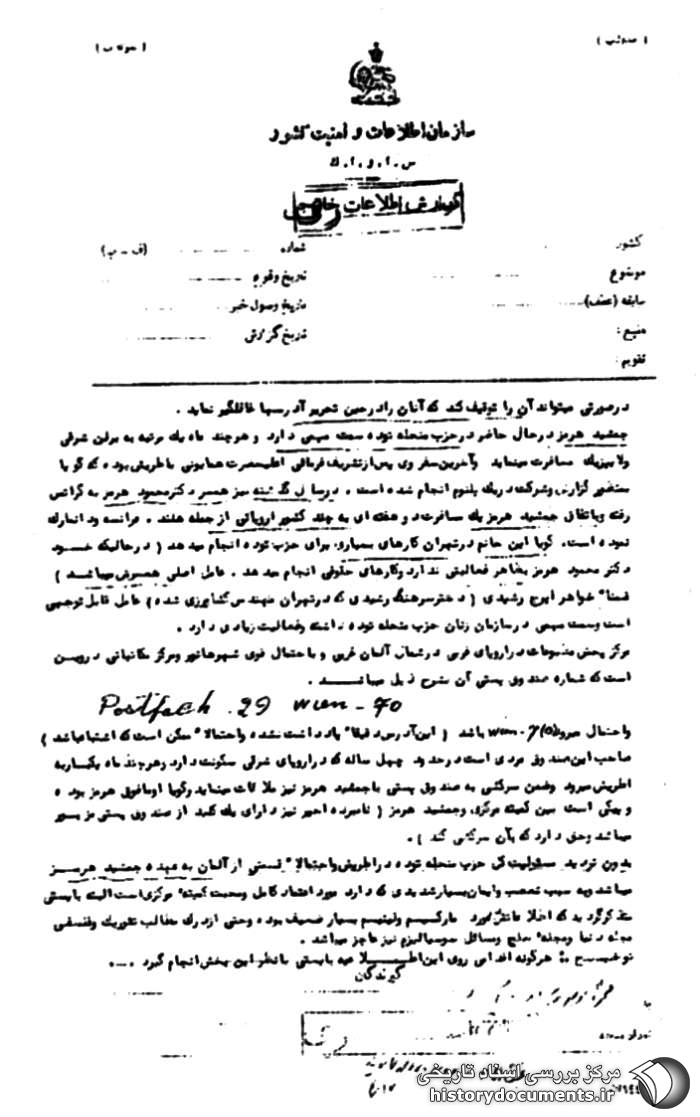 سازمان اطلاعات و امنیت کشور
س . ا . و . ا . ك
گزارش اطلاعات خارجی
کشور
شماره (ف - ب)
موضوع
تاریخ وقوع
سابقه (عطف)
تاریخ وصول خبر
منبع :
تاریخ گزارش
تقویم :
درصورتی میتواند آن را توقیف کند که آنان را درحین تحریر آدرسها غافلگیر نماید .
جمشید هرمز درحال حاضر درحزب منحله توده سمت مهمی دارد و هرچند ماه یك مرتبه به برلن شرقی
ولایپزیك مسافرت مینماید وآخرین سفر وی پس از تشریف فرمائی اعلیحضرت همایونی باطریش بوده که گویا
بمنظور گزارش وشرکت دریك پلنوم انجام شده است . درسال گذشته نیز همسر دکتر محمود هرمز به گراتس
رفته وباتفاق جمشید هرمز یك مسافرت دو هفته ای به چند کشور اروپائی از جمله هلند . فرانسه ودانمارك
نموده است. گویا این خانم درتهران کارهای بسیاری برای حزب توده انجام میدهد ( درحالیکه خود
دکتر محمود هرمز بظاهر فعالیتی ندارد وکارهای حقوقی انجام میدهد . عامل اصلی همسرش میباشد )
ضمنا" خواهر ایرج رشیدی ( دختر سرهنگ رشیدی که درتهران مهندس کشاورزی شده ) عامل قابل توجهی
است وسمت مهمی درسازمان زنان حزب منحله توده داشته وفعالیت زیادی دارد .
مرکز پخش مطبوعات دراروپای غربی درشمال آلمان غربی و باحتمال قوی شهر هانور ومرکز مکاتباتی در وین
است که شماره صندوق پستی آن بشرح ذیل میباشد .
Postfach . 29 Wien - 70
واحتمال میرود wien - 7(0) باشد ( این آدرس دقیقا" یادداشت نشده واحتمالا" ممکن است که اشتباه باشد )
صاحب این صندوق مردی است درحدود چهل ساله که دراروپای شرقی سکونت دارد وهرچند ماه یکباربه
اطریش میرود وضمن سرکشی به صندوق پستی باجمشید هرمز نیز ملاقات مینماید وگویا اومافوق هرمز بوده
و پیکی است بین کمیته مرکزی وجمشید هرمز ( نامبرده اخیر نیز دارای یك کلید از صندوق پستی مزبور
میباشد وحق دارد که بآن سرکشی کند ) .
بدون تردید مسئولیت کل حزب منحله توده دراطریش واحتمالا" قسمتی از آلمان به عهده جمشید هرمز
میباشد وبه سبب تعصب وایمان بسیار شدیدی که دارد مورد اعتماد کامل وصحبت کمیته مرکزی است البته بایستی
متذکر گردید که اطلاعاتش درمورد مارکسیسم ولنینیسم بسیار ضعیف بوده وحتی ازدرك مطالب تئوریك وفلسفی
مجله دنیا ومجله صلح ومسائل سوسیالیزم نیز عاجز میباشد .
توضیح : هرگونه اقدامی روی این اطلاعیه بایستی بانظر این بخش انجام گیرد . ...
گیرندگان
مرکز بررسی اسناد تاریخی
historydocuments.ir